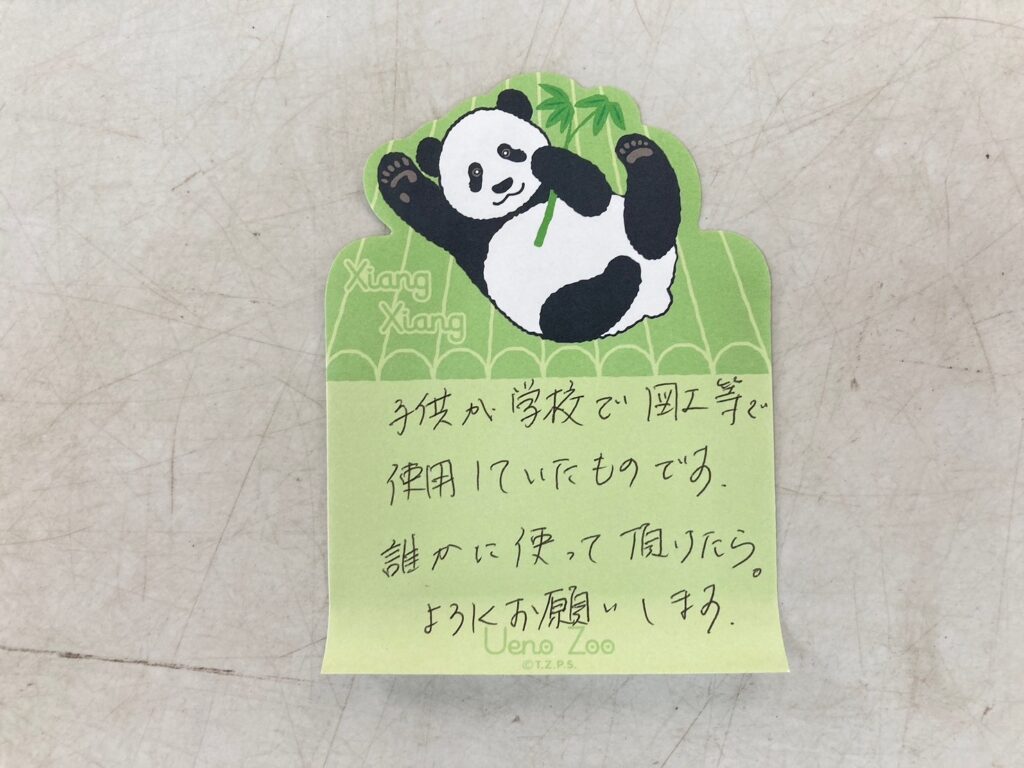 Xiang
Xiang
子供が学校で図工等で
使用していたものです.
誰かに使って頂けたら。
よろしくお願いします.
Ueno Zoo
©T.Z.P.S.